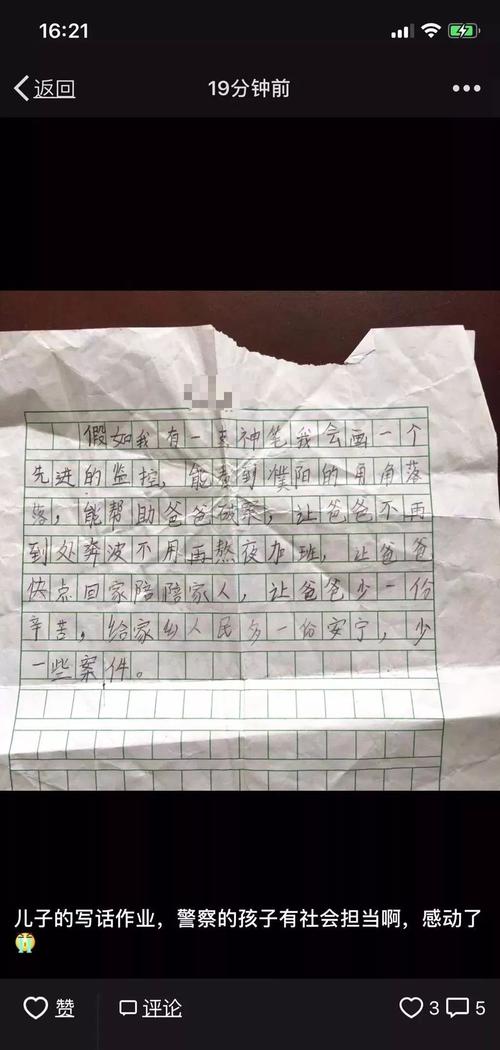 16:21
返回
19分钟前
假如我有一支神笔我会画一个
先进的监控,能看到濮阳的角角落
落,能帮助爸爸破案,让爸爸不再
到处奔波不用再熬夜加班,让爸爸
快点回家陪陪家人,让爸爸少一份
辛苦,给家乡人民多一份安宁,少
一些案件。
儿子的写话作业,警察的孩子有社会担当啊,感动了
😭
赞
评论
3
5